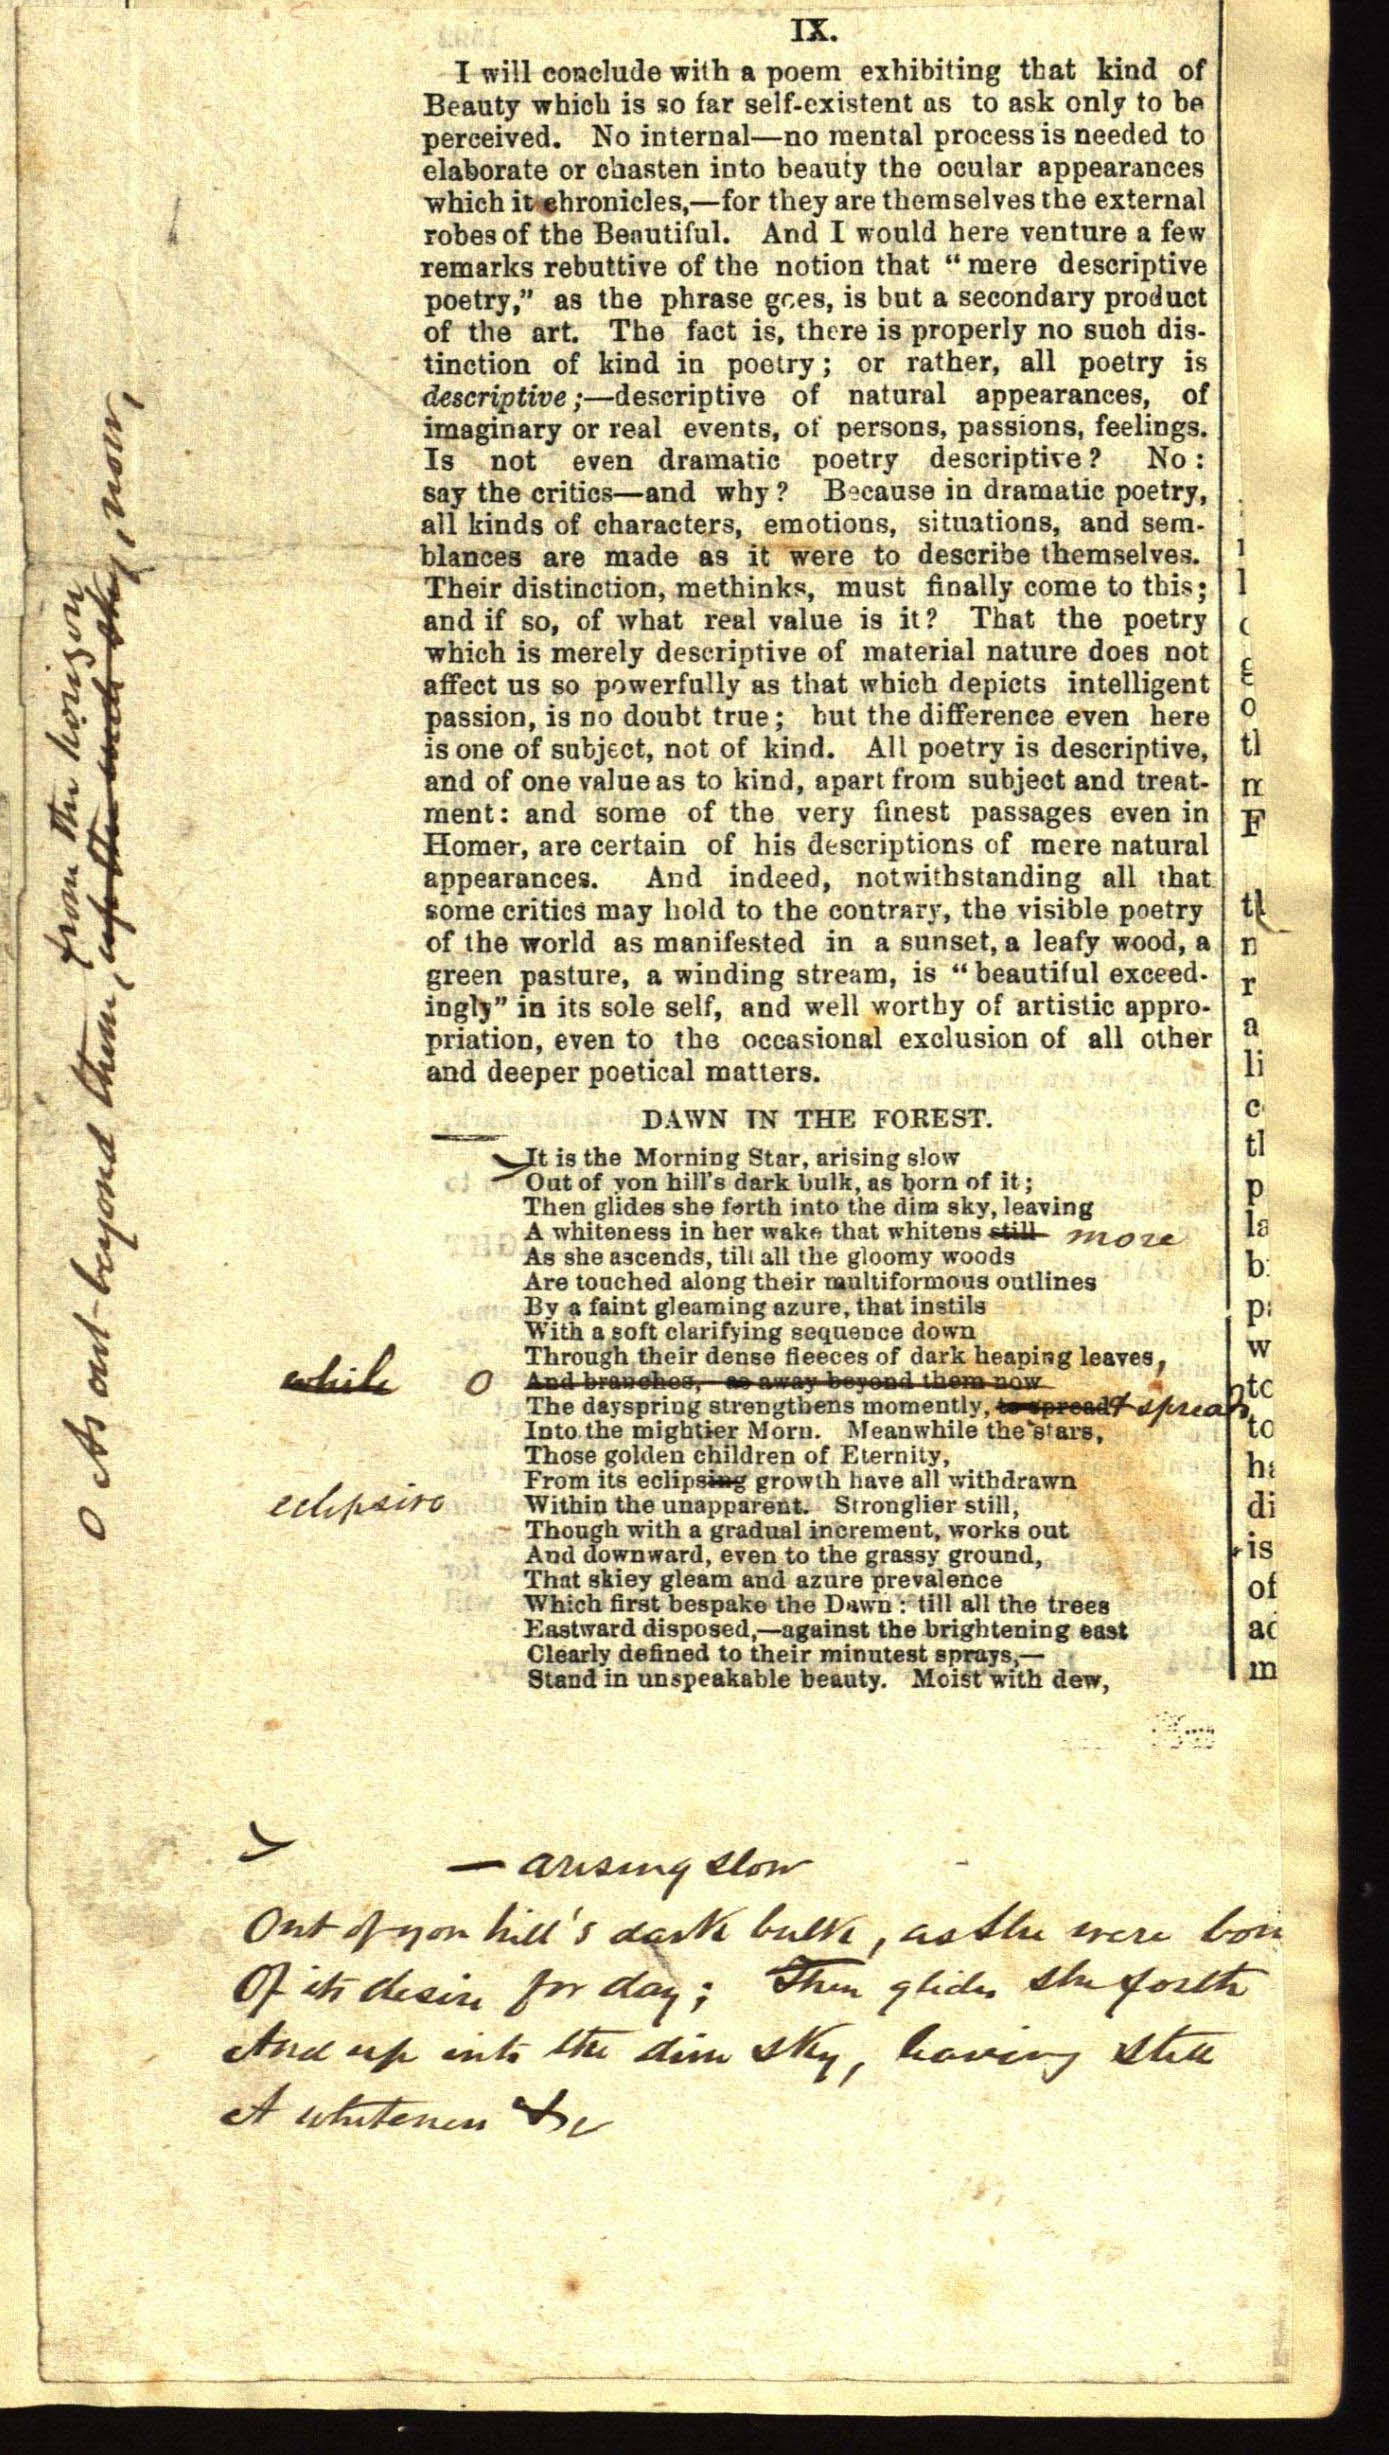 IX.
I will conclude with a poem exhibiting that kind of
Beauty which is so far self-existent as to ask only to be
perceived. No internal—no mental process is needed to
elaborate or chasten into beauty the ocular appearances
which it chronicles,—for they are themselves the external
robes of the Beautiful. And I would here venture a few
remarks rebuttive of the notion that "mere descriptive
poetry," as the phrase goes, is but a secondary product
of the art. The fact is, there is properly no such dis-
tinction of kind in poetry; or rather, all poetry is
descriptive;—descriptive of natural appearances, of
imaginary or real events, of persons, passions, feelings.
Is not even dramatic poetry descriptive? No:
say the critics—and why? Because in dramatic poetry,
all kinds of characters, emotions, situations, and sem-
blances are made as it were to describe themselves.
Their distinction, methinks, must finally come to this;
and if so, of what real value is it? That the poetry
which is merely descriptive of material nature does not
affect us so powerfully as that which depicts intelligent
passion, is no doubt true; but the difference even here
is one of subject, not of kind. All poetry is descriptive,
and of one value as to kind, apart from subject and treat-
ment: and some of the very finest passages even in
Homer, are certain of his descriptions of mere natural
appearances. And indeed, notwithstanding all that
some critics may hold to the contrary, the visible poetry
of the world as manifested in a sunset, a leafy wood, a
green pasture, a winding stream, is "beautiful exceed-
ingly" in its sole self, and well worthy of artistic appro-
priation, even to the occasional exclusion of all other
and deeper poetical matters.
DAWN IN THE FOREST.
It is the Morning Star, arising slow
Out of yon hill's dark bulk, as born of it;
Then glides she forth into the dim sky, leaving
A whiteness in her wake that whitens still more
As she ascends, till all the gloomy woods
Are touched along their multiformous outlines
By a faint gleaming azure, that instils
With a soft clarifying sequence down
Through their dense fleeces of dark heaping leaves,
while O And branches, as away beyond them now
The dayspring strengthens momently, to spread & spreads
Into the mightier Morn. Meanwhile the stars,
Those golden children of Eternity,
From its eclipsing growth have all withdrawn
eclipsive Within the unapparent. Stronglier still,
Though with a gradual increment, works out
And downward, even to the grassy ground,
That skiey gleam and azure prevalence
Which first bespake the Dawn: till all the trees
Eastward disposed,—against the brightening east
Clearly defined to their minutest sprays,—
Stand in unspeakable beauty. Moist with dew,
— arising slow
Out of yon hill's dark bulk, as she were born
Of its desire for day; Then glides she forth
And up into the dim sky, leaving still
A whiteness &c
from the horizon
O As out-beyond them, up the sky, now,